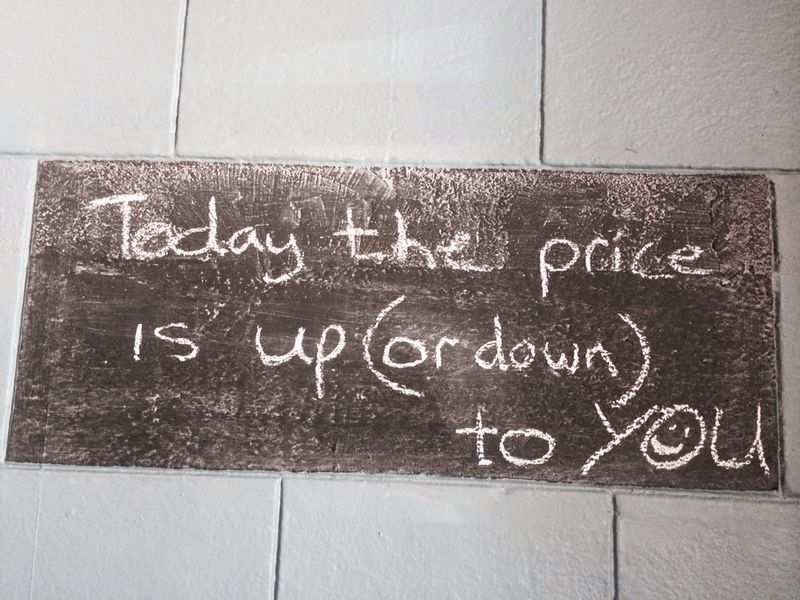 Today the price
is up (or down)
to YOU